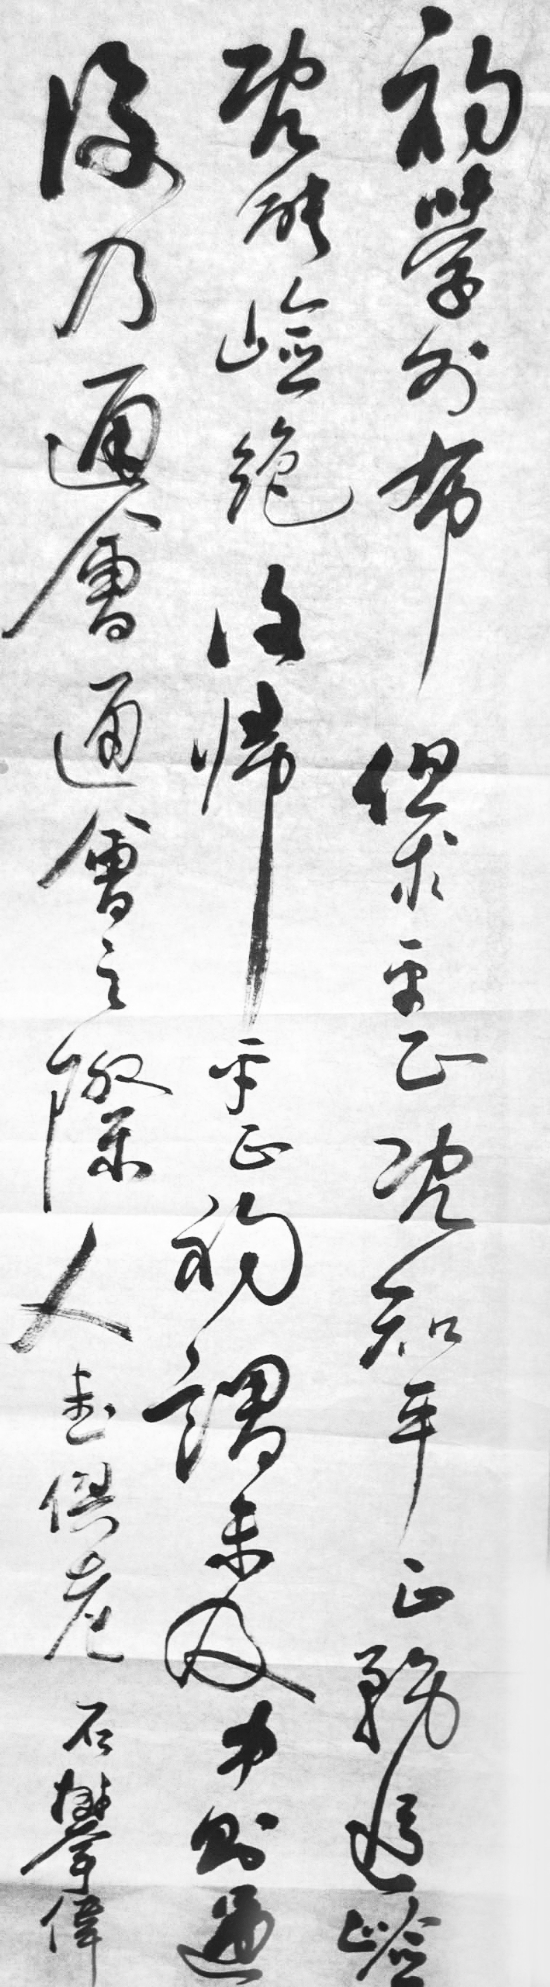 初學分布但求平正既知平正務追險
既能險絕復歸平正初謂未及中則過
後乃通會通會之際人書俱老 石攀偉